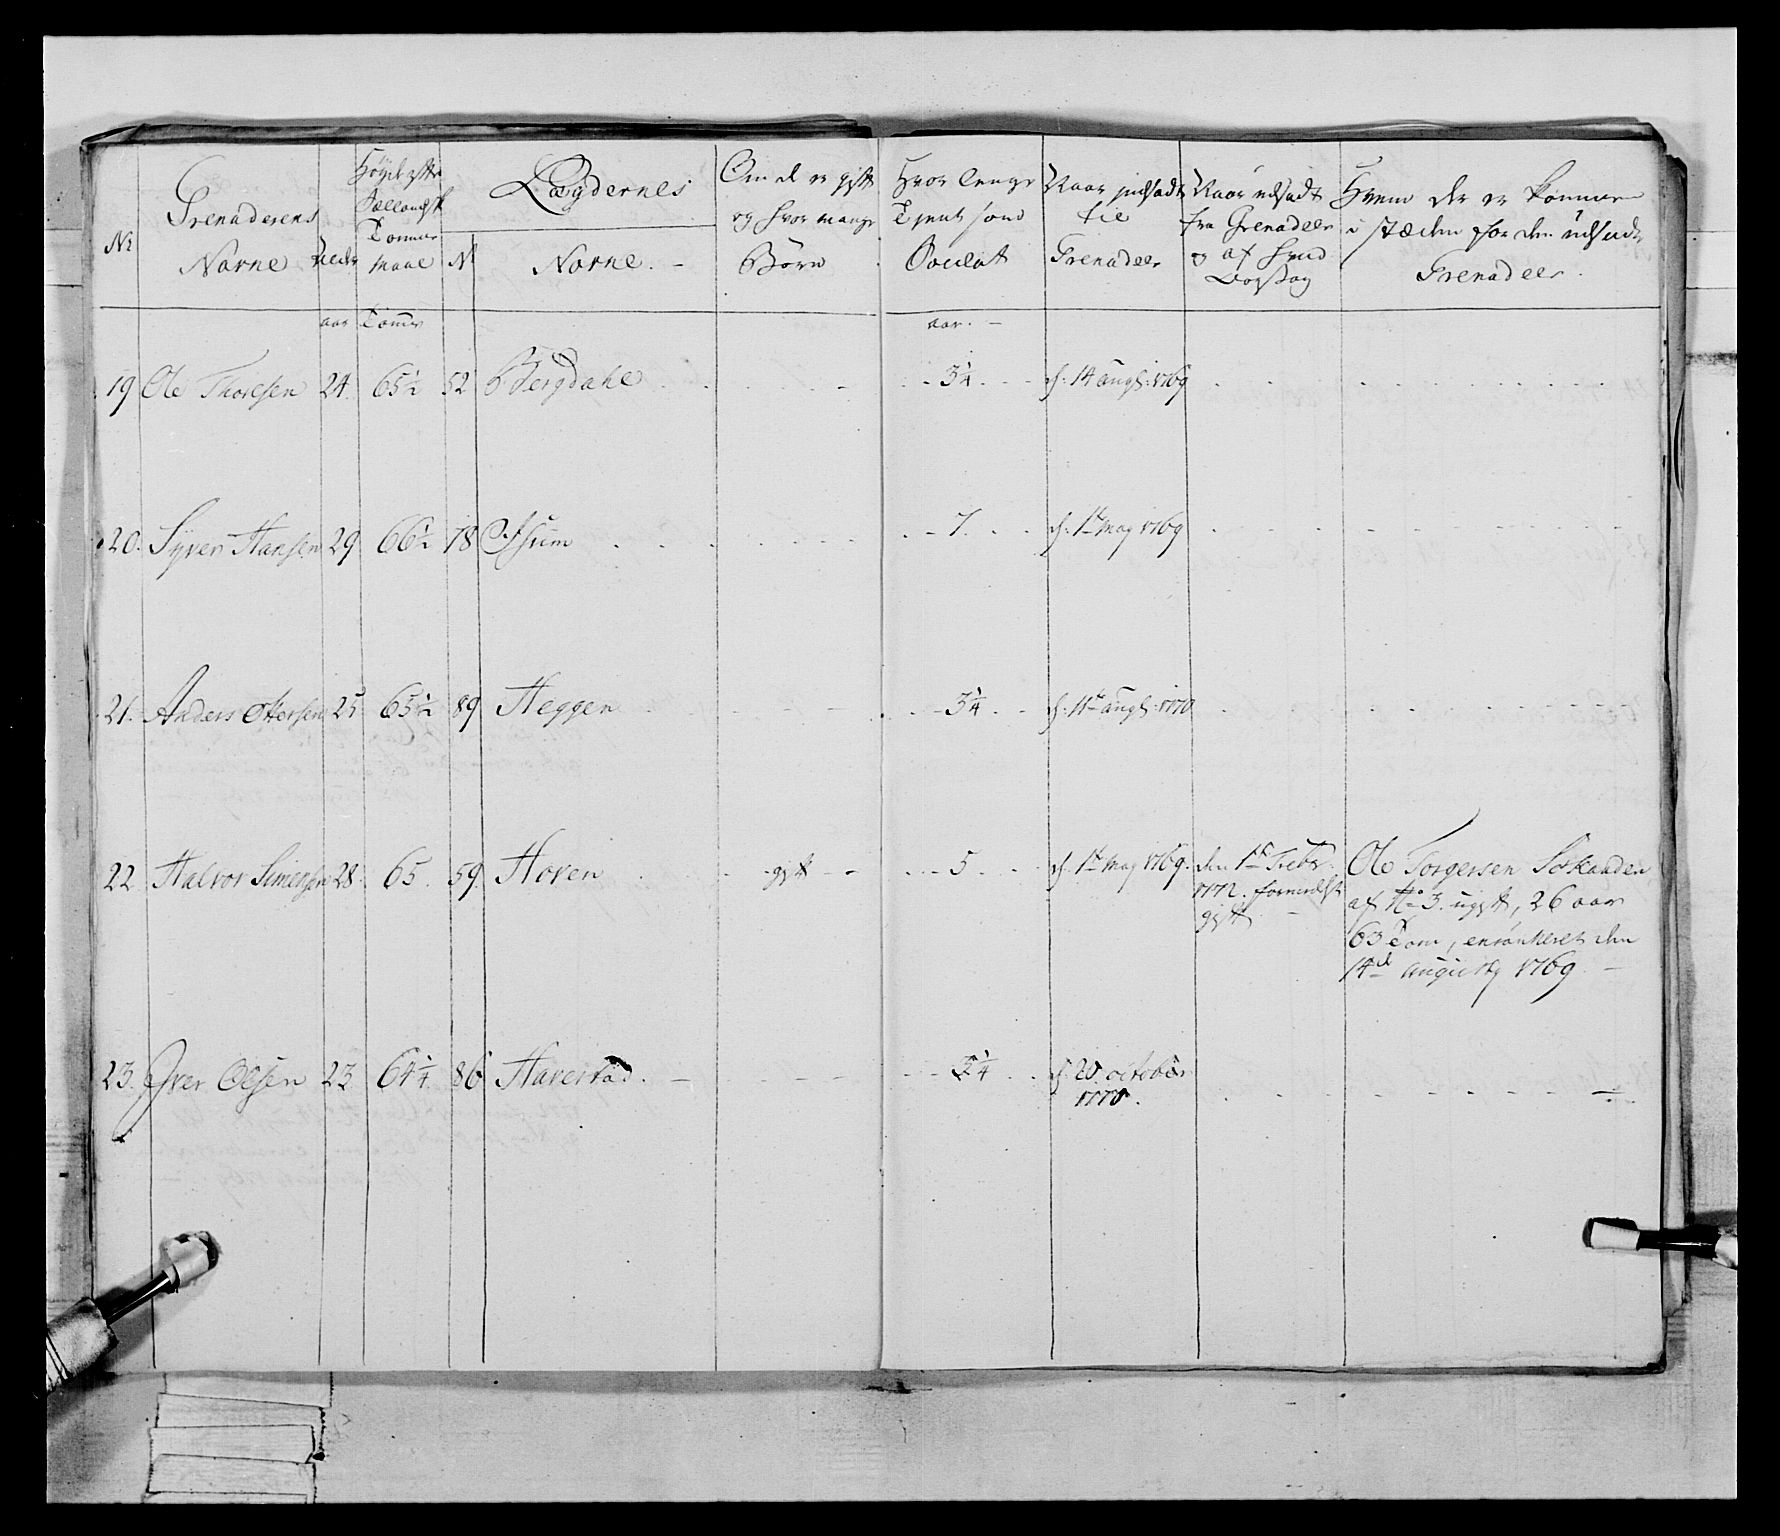 No
Grenaderens
Navne
Alder
Høyde efter
Siællandsk
Tomme
Maal
Lægdernes
N
Navne. -
Om de er gift
og hvor mange
Børn
Hvor lenge
Tient som
Soldat
Naar indsadt
til
Grenadeer
Naar udsadt
fra Grenadeer
og af hvad
Aarsag
Hvem der er kommen
i stæden for den udsadte
Grenadeer.
aar Tomer aar. -
19 Ole Thoresen 24. 65½ 52 Bergdahl 3¼ d. 14 augs: 1769
20. Syver Hansen 29 66½ 78 Issum 7. d. 1te May 1769
21. Anders Ottersen 25 65½ 89 Heggen 3¼ d. 11te augs: 1770
22 Halvor Simensen 28. 65. 59. Hoven gift 5 d. 1te May 1769. den 1te Febr.
1772. formedelst
gift. -
Ole Torgersen Sokanden
af No 3. ugift, 26 aar
63 Tom, enroulleret den
14de augusty 1769. -
23. Iver Olsen 23 64¼ 86 Haverstad. - 3¼ d. 20 october
1770.